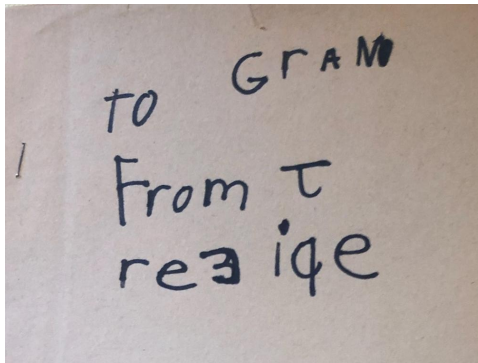 TO GrAN
From T
reɘ iqe